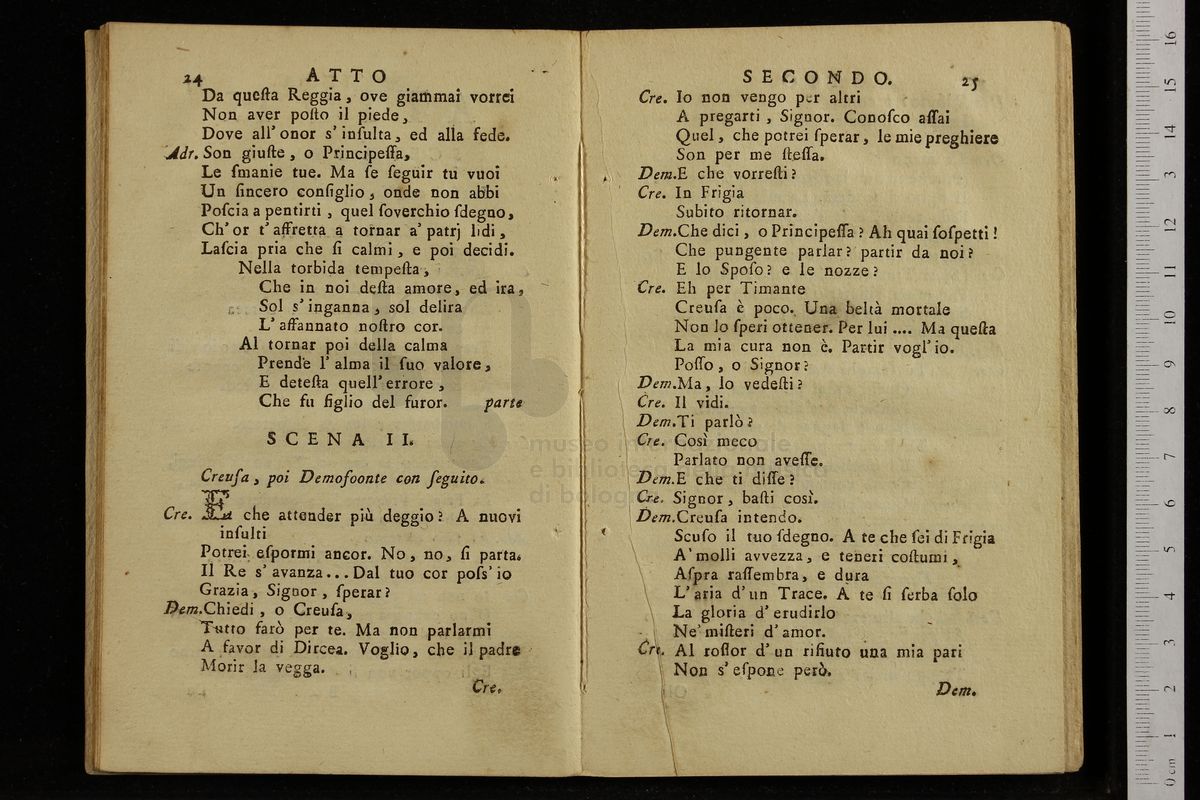 24 ATTO
Da queſta Reggia, ove giammai vorrei
Non aver poſto il piede,
Dove all' onor s' inſulta, ed alla fede.
Adr. Son giuſte, o Principeſſa,
Le ſmanie tue. Ma ſe ſeguir tu vuoi
Un ſincero conſiglio, onde non abbi
Poſcia a pentirti, quel ſoverchio ſdegno,
Ch' or t' affretta a tornar a' patrj lidi,
Laſcia pria che ſi calmi, e poi decidi.
Nella torbida tempeſta,
Che in noi deſta amore, ed ira,
Sol s' inganna, sol delira
L' affannato noſtro cor.
Al tornar poi della calma
Prende l' alma il ſuo valore,
E deteſta quell' errore,
Che fu figlio del furor. parte
SCENA II.
Creuſa, poi Demofoonte con ſeguito.
Cre. E che attender più deggio? A nuovi
inſulti
Potrei eſpormi ancor. No, no, ſi parta.
Il Re s' avanza... Dal tuo cor poſs' io
Grazia, Signor, ſperar?
Dem. Chiedi, o Creuſa,
Tutto farò per te. Ma non parlarmi
A favor di Dircea. Voglio, che il padre
Morir la vegga.
Cre.
SECONDO. 25
Cre. Io non vengo per altri
A pregarti, Signor. Conoſco aſſai
Quel, che potrei ſperar, le mie preghiere
Son per me ſteſſa.
Dem. E che vorreſti?
Cre. In Frigia
Subito ritornar.
Dem. Che dici, o Principeſſa? Ah quai ſoſpetti!
Che pungente parlar? partir da noi?
E lo Spoſo? e le nozze?
Cre. Eh per Timante
Creuſa è poco. Una beltà mortale
Non lo ſperi ottener. Per lui .... Ma queſta
La mia cura non è. Partir vogl' io.
Poſſo, o Signor?
Dem. Ma, lo vedeſti?
Cre. Il vidi.
Dem. Ti parlò?
Cre. Così meco
Parlato non aveſſe.
Dem. E che ti diſſe?
Cre. Signor, baſti così.
Dem. Creuſa intendo.
Scuſo il tuo ſdegno. A te che ſei di Frigia
A' molli avvezza, e teneri coſtumi,
Aſpra raſſembra, e dura
L' aria d' un Trace. A te ſi ſerba ſolo
La gloria d' erudirlo
Ne' miſteri d' amor.
Cre. Al roſſor d' un rifiuto una mia pari
Non s' eſpone però.
Dem.
museo internazionale
e biblioteca della musica
di bologna
0 cm 1 2 3 4 5 6 7 8 9 10 11 12 13 14 15 16